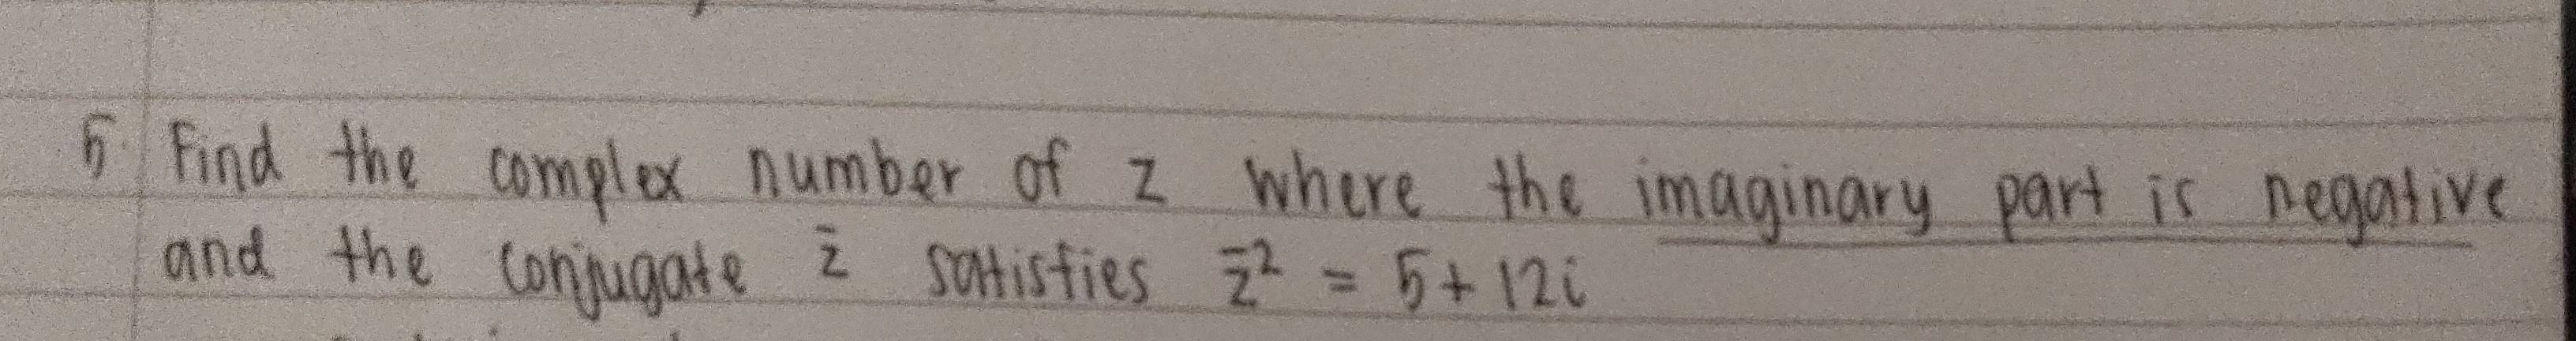 5. Find the complex number of z where the imaginary part is negative
and the conjugate z̄ satisfies z̄² = 5 + 12i